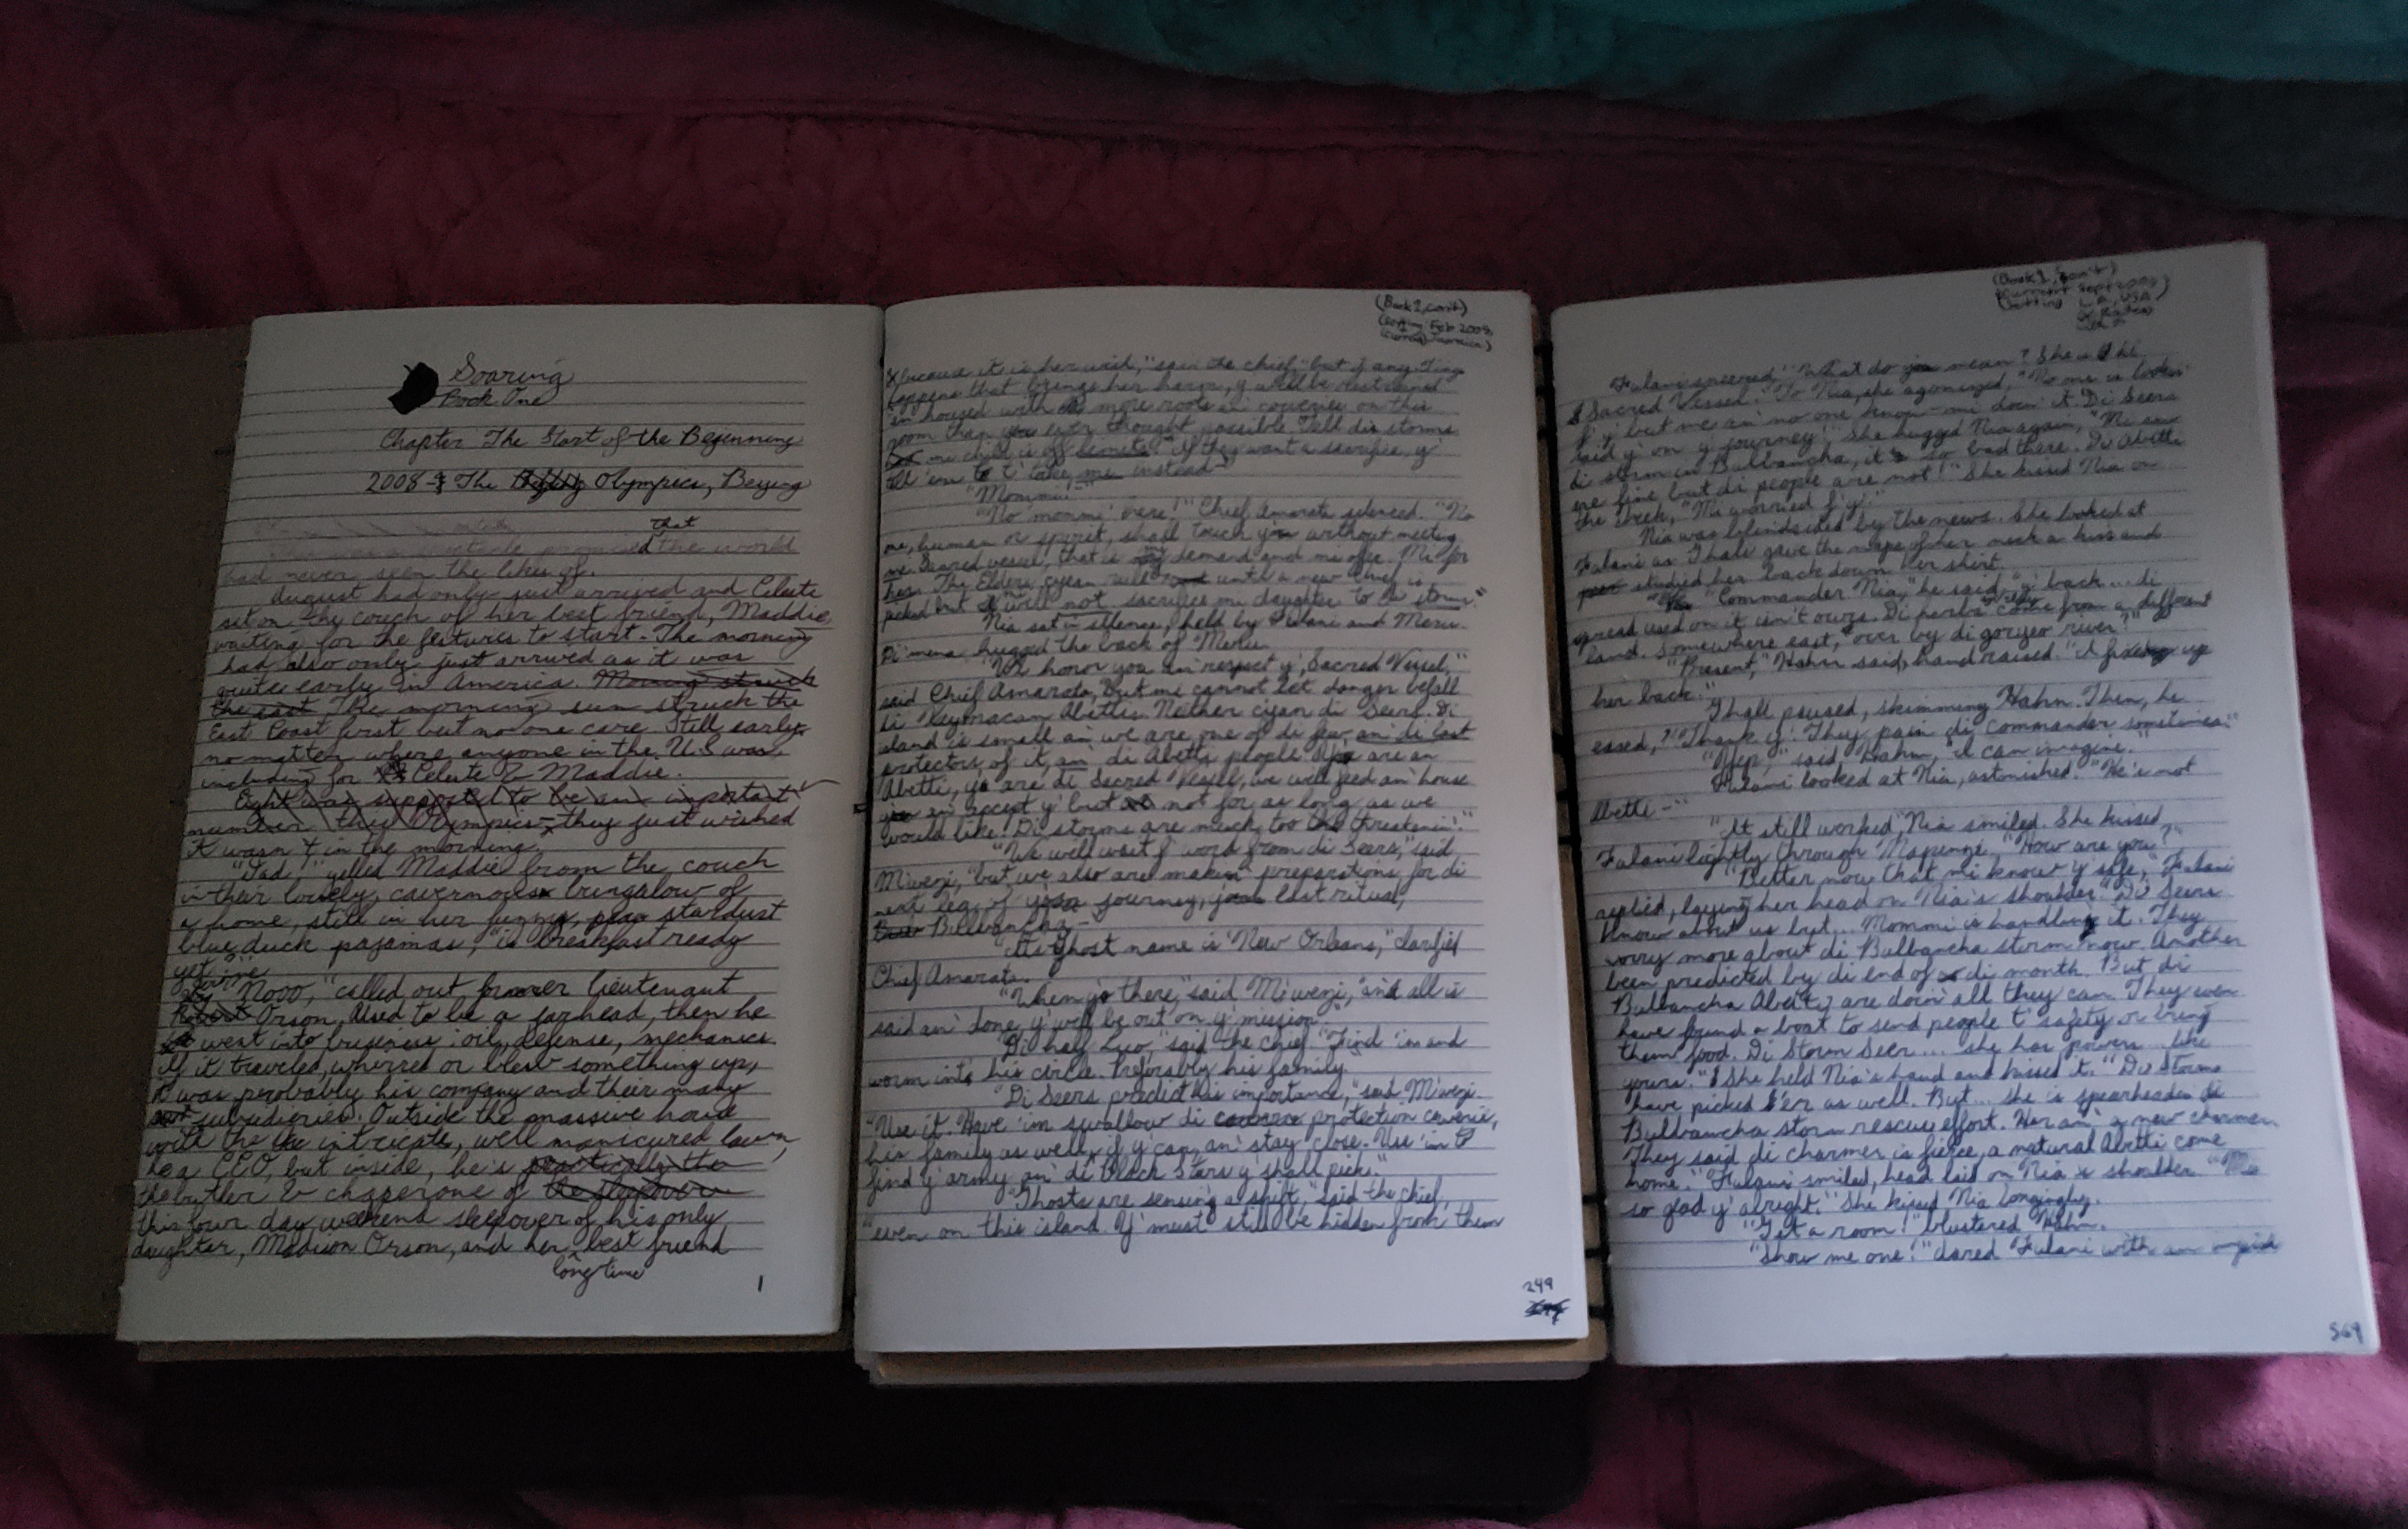 Soaring
Book One
Chapter The Start of the Beginning
2008 The Olympics, Beijing
that
promised the world
had never seen the likes of.
August had only just arrived and Celeste
sat on the couch of her best friend, Maddie,
waiting for the festures to start. The morning
had also only just arrived as it was
quite early in America. Morning struck
the east The morning sun struck the
East Coast first but no one care. Still early
no matter where anyone in the U.S was,
including for Celeste & Maddie.
Eight was supposed to be an important
number this Olympics, they just wished
it wasn't in the morning.
"Dad!" yelled Maddie from the couch
in their lovely, cavernous bungalow of
a home, still in her fuzzy, stardust
blue duck pajamas, "is breakfast ready
yet?"
"Nooo," called out former lieutenant
Robert Orson, Used to be a jarhead, then he
went into business: oil, defense, mechanics.
If it traveled, whirred or blew something up,
it was probably his company and their many
subsidieries. Outside the massive house
with the intricate, well manicured lawn,
he a CEO, but inside, he's practically the
the butler & chaperone of the sleepover
this four day weekend sleepover of his only
daughter, Madison Orson, and her best friend
long time
1
(Book 1, con't)
Feb 2008,
Jamaica)
because it is her will," said the chief, "but if any ting
happens that brings her harm, y' will be restrained
an' housed with more roots an' coweries on this
room than you ever thought possible. Tell dis storms
me child is off limits! If they want a sacrifice, y'
tell 'em to t' take me instead-"
"Mommi!-"
"No 'mommi' here!" Chief Amarata silenced. "No
one, human or spirit, shall touch you without meeting
me sacred vessel, that is my demand and me offer. Me for
her. The Elders cyean rule until a new Chief is
picked but I will not sacrifice me daughter to a storm."
Nia sat in silence, held by Fulani and Meru.
Di'mera hugged the back of Meru.
"We honor you an' respect y', Sacred Vessel,"
said Chief Amarata, "But me cannot let danger befall
di Abettis. Neither cyan di Seers. Di
island is small an' we are one of di few an' di last
protectors of it, an' di Abetti people. Ya are an
Abetti, ya are di Sacred Vessel, we will feed an' house
you an' accept y' but not for as long as we
would like. Di storms are much too threatenin'."
"We will wait f' word from di Seers," said
M'wezi, "but we also are makin' preparations for di
next leg of your journey, your last ritual,
Bulbancha-"
"Its Ghost name is 'New Orleans,'" clarified
Chief Amarata.
"When y' there," said M'wezi, "and all is
said an' done, y' will be out on y' mission."
"Di half Luo," said the chief. "Find 'im and
worm into his circle. Preferably his family."
"Di Seers predict his importance," said M'wezi.
"Use it. Have 'im swallow di protection cowerie,
his family as well, if y' can, an' stay close. Use 'im t'
find y' army, an' di Black Stars y' shall pick."
"Ghosts are sensing a shift," said the chief,
"even on this island. Y' must still be hidden from them
249
(Book 1, con't)
Sept 2008
L.A, USA
Fulani sneered. "What do you mean? She a
Sacred Vessel." To Nia, she agonized, "No one is lookin'
f' y' but me an' no one know - mi doin' it. Di Seers
said y' on y' journey!" She hugged Nia again, "Mi saw
di storm in Bulbancha, it's so bad there. Di Abetti
are fine but di people are not!" She kissed Nia on
the cheek, "Mi worried f' y'."
Nia was blindsided by the news. She looked at
Fulani as Thali gave the nape of her neck a kiss and
studied her back down her shirt.
"Commander Nia," he said, "y' back... di
spread used on it isn't ours. Di herbs come from a different
land. Somewhere east, over by di gorges river?"
"Present," Hahn said, hand raised. "I fixed up
her back."
Thali paused, skimming Hahn. Then, he
eased, "Thank y'. They pain di commander sometimes."
"Yep," said Hahn, "I can imagine."
Fulani looked at Nia, astonished. "He's not
Abetti-"
"It still worked," Nia smiled. She kissed
Fulani lightly through Mapenzi, "How are you?"
"Better now that mi know y' safe," Fulani
replied, laying her head on Nia's shoulder. "Di Seers
know about us but... Mommi is handling it. They
worry more about di Bulbancha storm now. Another
been predicted by di end of di month. But di
Bulbancha Abetti, are doin' all they can. They even
have found a boat to send people t' safety or bring
them food. Di Storm Seer... she has powers... like
yours." She held Nia's hand and kissed it. "Di Storms
have picked 'er as well. But... she is spearheadin di
Bulbancha storm rescue effort. Her an' a new charmer.
They said di charmer is fierce, a natural Abetti come
home." Fulani smiled, head laid on Nia's shoulder. "Me
so glad y' alright." She kissed Nia longingly.
"Get a room!" blustered Hahn.
"Show me one!" dared Fulani with an
569